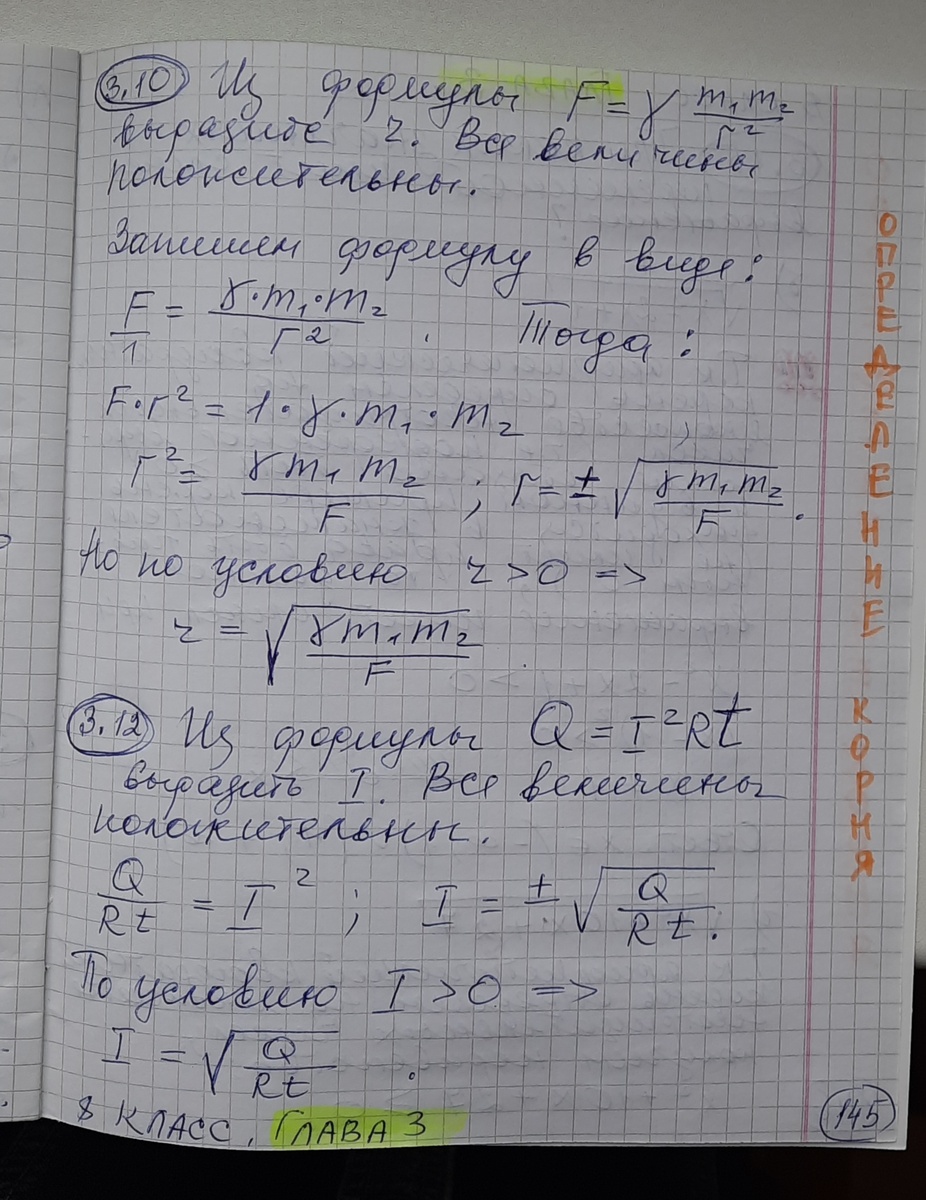 3.10 Из формулы F = γ m₁m₂/r²
выразите r. Все величины
положительны.
Запишем формулу в виде:
F/1 = γ·m₁·m₂/r². Тогда:
F·r² = 1·γ·m₁·m₂;
r² = γm₁m₂/F; r = ±√(γm₁m₂/F).
Но по условию r > 0 =>
r = √(γm₁m₂/F)
3.12 Из формулы Q = I²Rt
выразить I. Все величены
положительны.
Q/Rt = I²; I = ±√(Q/Rt).
По условию I > 0 =>
I = √(Q/Rt).
8 КЛАСС. ГЛАВА 3
145
ОПРЕДЕЛЕНИЕ КОРНЯ